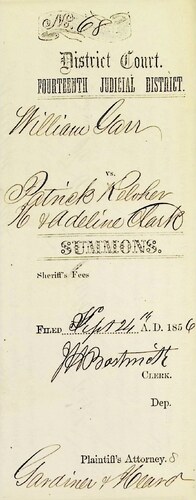 No. 68
District Court.
FOURTEENTH JUDICIAL DISTRICT.
William Garr
vs.
Patrick Keloher
& Adeline Clark
SUMMONS.
Sheriff's Fees
FILED Sept 24th A. D. 1856
CLERK.
Dep.
Plaintiff's Attorney. 8
Gardiner &